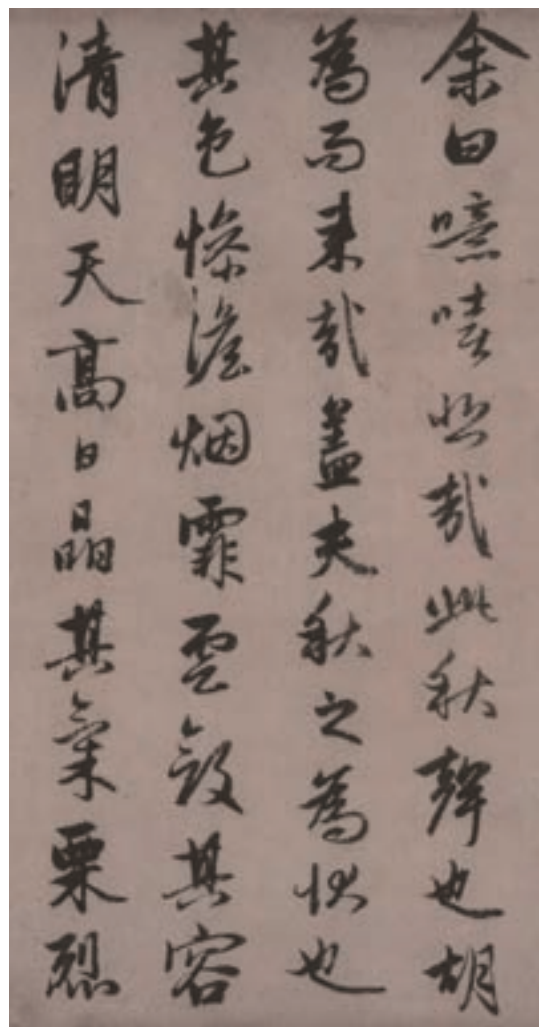 余曰噫嘻悲哉此秋聲也胡
為而来哉盖夫秋之為狀也
其色惨澹烟霏雲斂其容
清明天高日晶其氣栗烈